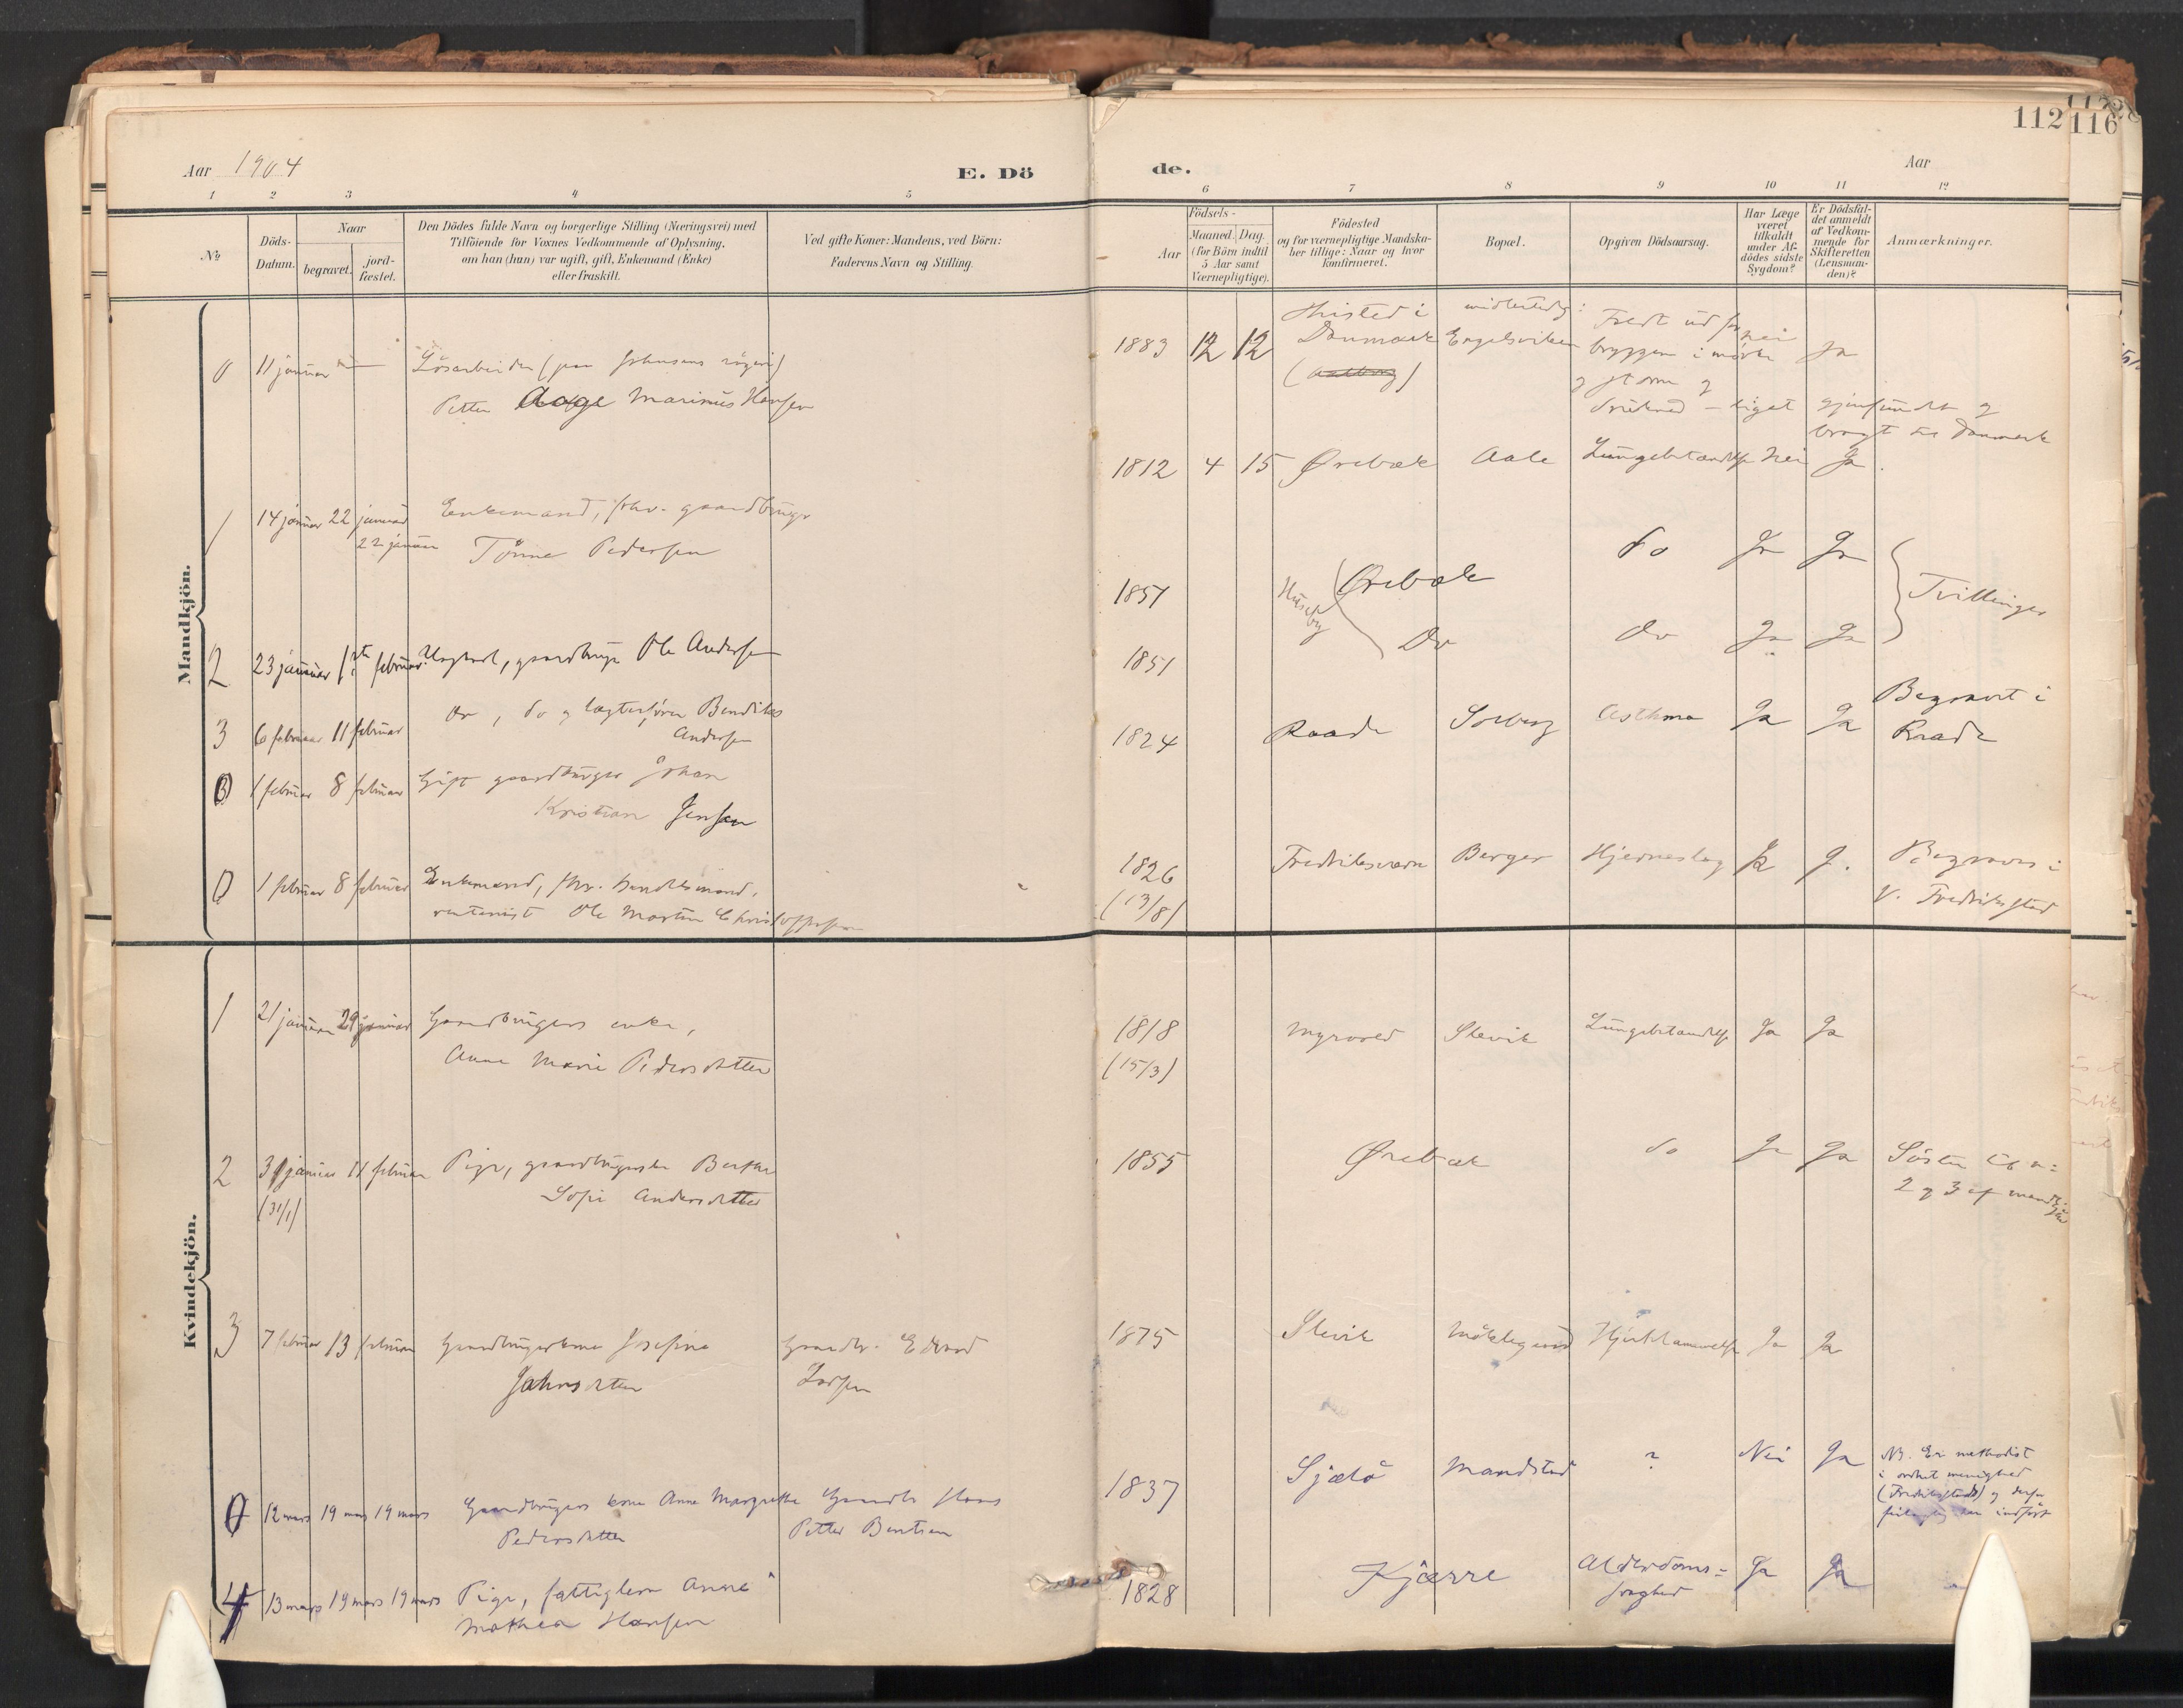 112
116
Aar 1904
E. Dö
de.
Aar
1 2 3 4 5
6 7 8 9 10 11 12
№
Döds-
Datum.
Naar
begravet.
jord-
fæstet.
Den Dödes fulde Navn og borgerlige Stilling (Næringsvei) med
Tilföiende for Voxnes Vedkommende af Oplysning,
om han (hun) var ugift, gift, Enkemand (Enke)
eller fraskilt.
Ved gifte Koner: Mandens, ved Börn:
Faderens Navn og Stilling.
Aar
Födsels-
Maaned. Dag.
(for Börn indtil
5 Aar samt
Værnepligtige).
Födested
og for værnepligtige Mandska-
ber tillige: Naar og hvor
konfirmeret.
Bopæl.
Opgiven Dödsaarsag.
Har Læge
været
tilkaldt
under Af-
dödes sidste
Sygdom?
Er Dödsfal-
det anmeldt
af Vedkom-
mende for
Skifteretten
(Lensman-
den)?
Anmærkninger.
Mandkjön.
0 11 januar
Lösarbeider (paa Johnsens
Petter Aage Marinus Hansen
1883 12 12
Thisted i
Danmark
midlertidig:
Engelsviken
bryggen i mörke
og storm og
druknede - liget gjenfundet og
bragt til Danmark
nei ja
1 14 januar 22 januar
22 januar
Enkemand, fhv. gaardbruger
Tönne Pedersen
1812 4 15 Ørebæk Aale Lungebetændelse Nei Ja.
2 23 januar 1ste februar Ungkarl, gaardbruger Ole Andersen
1851 Huseby Ørebæk do Ja Ja
Tvillinger
3 6 februar 11 februar do, do og lægterfører Bendiks
Andersen
1851 Do do Ja Ja
0 1 februar 8 februar Gift gaardbruger Johan
Kristian Jensen
1824 Raade Solberg Asthma Ja Ja Begravet i
Raade
0 1 februar 8 februar Enkemand, fhv. handelsmand,
rentenist Ole Martin Christoffersen
1826
(13/8)
Fredriksværn Berger Hjerneslag Ja J. Begraves i
V. Fredrikstad
Kvindekjön.
1 21 januar 29 januar Gaardbrugers enke,
Anne Marie Pedersdatter
1818
(15/3)
Slevik Lungebetændelse Ja Ja
2 31 januar 11 februar Pige, gaardbrugerske Berthe
(31/1) Sofie Andersdatter
1855 Ørebæk do Ja Ja Söster til n:
2 og 3 af mandkjön
3 7 februar 13 februar Gaardbrugerkone Josefine
Johnsdatter
Gaardbr. Edvard
Larsen
1875 Slevik Möklegaard Hjertelammelse Ja Ja
0 12 mars 19 mars 19 mars Gaardbrugers kone Anne Margrethe
Pedersdatter
Gaardbr Hans
Petter Bentsen
1837 Sjælö Mandstad ? Nei Ja NB. Er methodist
i ordnet menighed
(Fredrikstads) og derfor
feilagtig her indfört
4 13 mars 19 mars 19 mars Pige, fattiglem Anne
Mathea Hansen
1828 Kjærre Alderdoms-
svaghed
Ja Ja